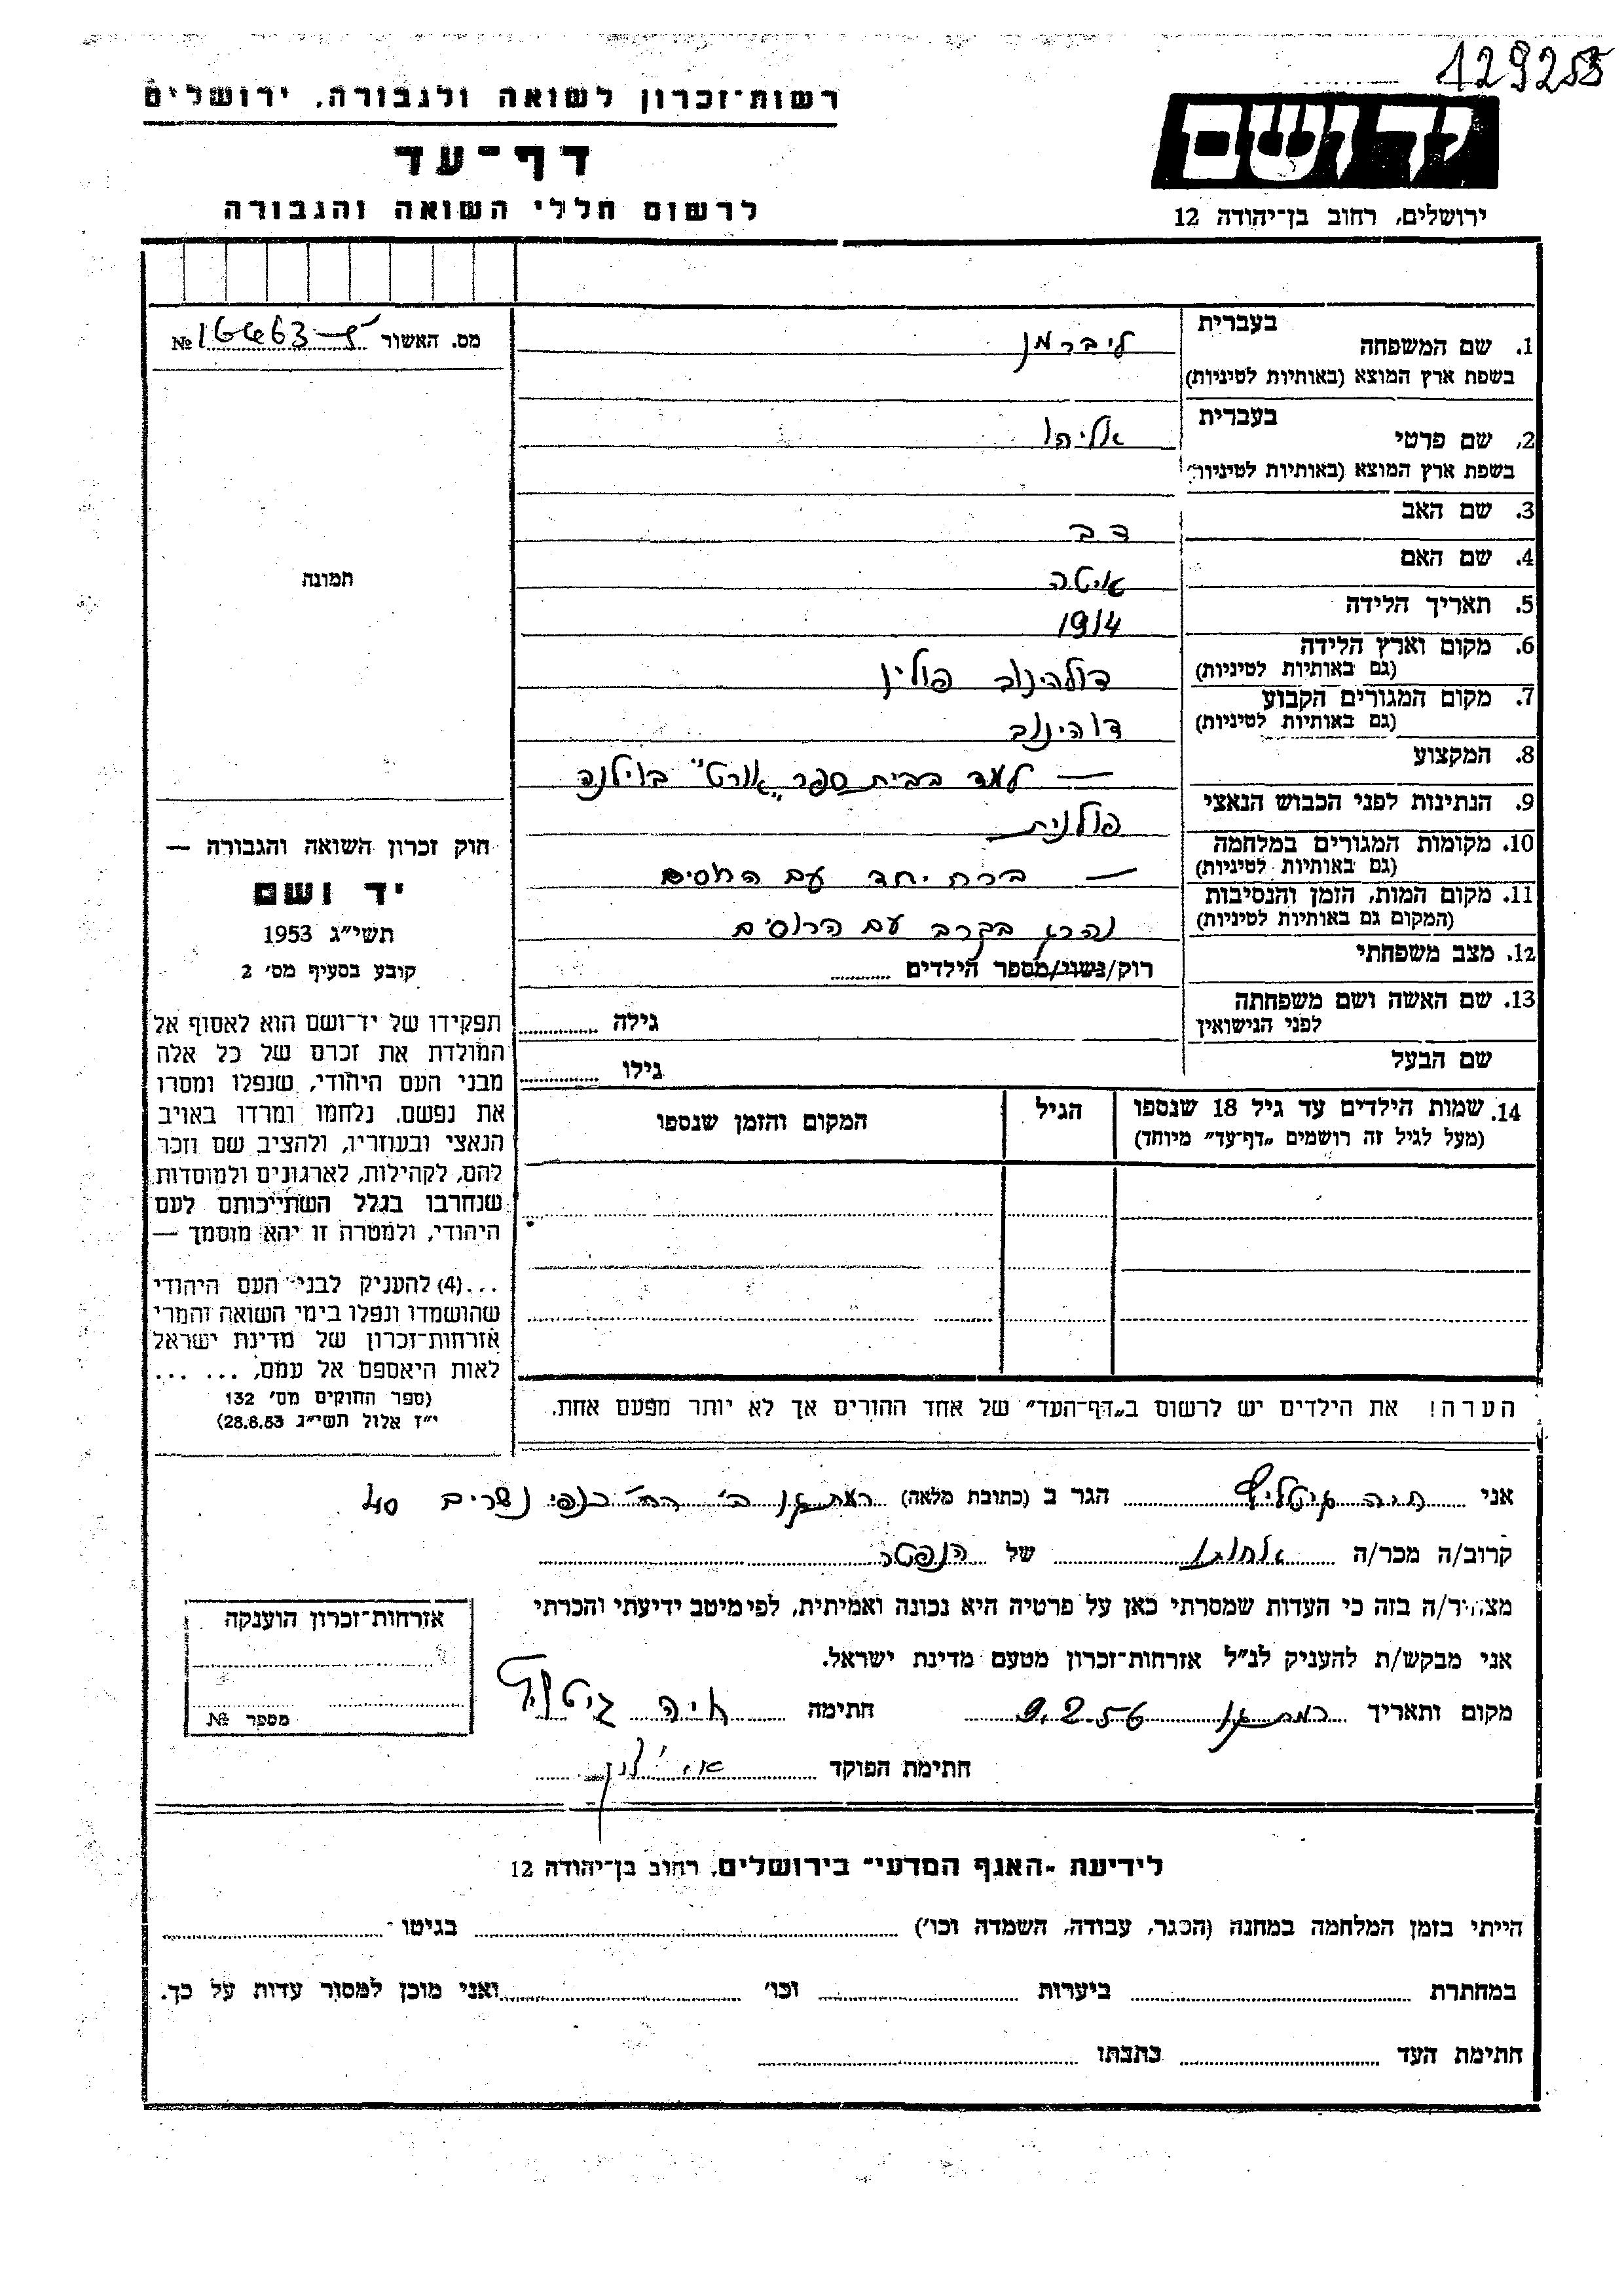 129255
רשות-זכרון לשואה ולגבורה, ירושלים
דף-עד
לרשום חללי השואה והגבורה
יד ושם
ירושלים, רחוב בן-יהודה 12
מס. האשור №
בעברית
1. שם המשפחה ליברמן
בשפת ארץ המוצא (באותיות לטיניות)
בעברית
2. שם פרטי אליהו
בשפת ארץ המוצא (באותיות לטיניות)
3. שם האב דב
4. שם האם איטה
5. תאריך הלידה 1914
6. מקום וארץ הלידה דולהינוב פולין
(גם באותיות לטיניות)
7. מקום המגורים הקבוע דוהינוב
(גם באותיות לטיניות)
8. המקצוע — למד בבית ספר „אורט" בוילנה
9. הנתינות לפני הכבוש הנאצי פולנית
10. מקומות המגורים במלחמה — ברח יחד עם הרוסים
(גם באותיות לטיניות)
11. מקום המות, הזמן והנסיבות נהרג בקרב עם הרוסים
(המקום גם באותיות לטיניות)
12. מצב משפחתי רוק/נשוי/מספר הילדים
13. שם האשה ושם משפחתה גילה
לפני הנישואין
שם הבעל גילו
14. שמות הילדים עד גיל 18 שנספו הגיל המקום והזמן שנספו
(מעל לגיל זה רושמים „דף-עד" מיוחד)
הערה! את הילדים יש לרשום ב„דף-העד" של אחד ההורים אך לא יותר מפעם אחת.
תמונה
חוק זכרון השואה והגבורה —
יד ושם
תשי"ג 1953
קובע בסעיף מס' 2
תפקידו של יד-ושם הוא לאסוף אל
המולדת את זכרם של כל אלה
מבני העם היהודי, שנפלו ומסרו
את נפשם, נלחמו ומרדו באויב
הנאצי ובעוזריו, ולהציב שם וזכר
להם, לקהילות, לארגונים ולמוסדות
שנחרבו בגלל השתייכותם לעם
היהודי, ולמטרה זו יהא מוסמך —
...(4) להעניק לבני העם היהודי
שהושמדו ונפלו בימי השואה והמרי
אזרחות-זכרון של מדינת ישראל
לאות היאספם אל עמם, ... ...
(ספר החוקים מס' 132
י"ז אלול תשי"ג 28.8.53)
אני חיה הגר ב (כתובת מלאה) רמת גן ב' רח' כנפי נשרים 40
קרוב/ה מכר/ה אחותו של הנפטר
מצהיר/ה בזה כי העדות שמסרתי כאן על פרטיה היא נכונה ואמיתית, לפי מיטב ידיעתי והכרתי
אני מבקש/ת להעניק לנ"ל אזרחות-זכרון מטעם מדינת ישראל.
מקום ותאריך רמת גן 9.2.56 חתימה חיה
חתימת הפוקד
אזרחות-זכרון הוענקה
מספר №
לידיעת „האגף המדעי" בירושלים, רחוב בן-יהודה 12
הייתי בזמן המלחמה במחנה (הסגר, עבודה, השמדה וכו') בגיטו
במחתרת ביערות וכו' ואני מוכן למסור עדות על כך.
חתימת העד כתבתו